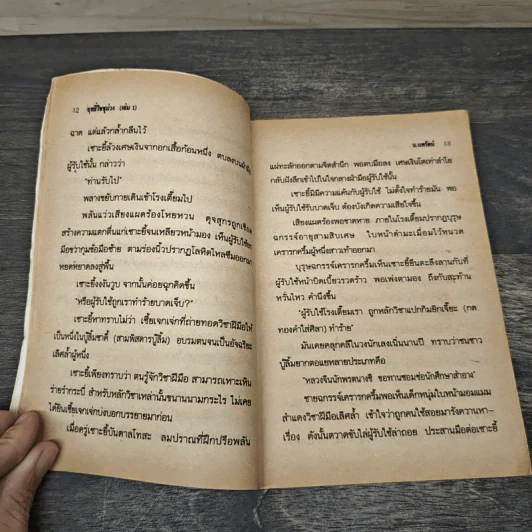 12 ฤทธิ์วิษุม่วง (เล่ม 1)
ฉาด แต่แล้วกล้ำกลืนไว้
เซาะยี้ล้วงเศษเงินจากอกเสื้อก้อนหนึ่ง ตบลงบนฝ่ามือ
ผู้รับใช้นั้น กล่าวว่า
"ท่านรับไป"
พลางขยับกายเดินเข้าโรงเตี๊ยมไป
พลันแว่วเสียงแผดร้องโหยหวน ดุจสุกรถูกเชือด
สร้างความแตกตื่นแก่เซาะยี้จนเหลียวหน้ามอง เห็นผู้รับใช้
มือขวากุมข้อมือซ้าย ตามร่องนิ้วปรากฏโลหิตไหลซึมออกมา
หยดหยาดลงสู่พื้น
เซาะยี้งงงันวูบ จากนั้นค่อยฉุกคิดขึ้น
"หรือผู้รับใช้ถูกเราทำร้ายบาดเจ็บ?"
เซาะยี้หาทราบไม่ว่า เซี้ยเจกเจ่กที่ถ่ายทอดวิชาฝีมือให้
เป็นหนึ่งในบู๊ลิ้มซาตี้ (สามพิสดารบู๊ลิ้ม) อบรมตนจนเป็นอัจฉริยะ
เลิศล้ำผู้หนึ่ง
เซาะยี้เพียงทราบว่า ตนรู้จักวิชาฝีมือ สามารถเหาะเหิน
ร่ายรำกระบี่ สำหรับหลักวิชาเหล่านั้นขนานนามกระไร ไม่เคย
ได้ยินเซี้ยเจกเจ่กบ่งบอกบรรยายมาก่อน
เมื่อครู่เซาะยี้บันดาลโทสะ ลมปราณที่ฝึกปรือพลัน
น.นพรัตน์ 13
แผ่ทะลักออกตามจิตสำนึก พอตบมือลง เศษเงินโตเท่าลำไย
กลับฝังลึกเข้าไปในใจกลางฝ่ามือผู้รับใช้นั้น
เซาะยี้มิมีความแค้นกับผู้รับใช้ ไม่ตั้งใจทำร้ายมัน พอ
เห็นผู้รับใช้รับบาดเจ็บ ต้องบังเกิดความเสียใจขึ้น
เสียงแผดร้องพอขาดหาย ภายในโรงเตี๊ยมปรากฏบุรุษ
ฉกรรจ์อายุสามสิบเศษ ใบหน้าดำทะเมื่อมไว้หนวด
เคราครกครึ้มผู้หนึ่งสาวเท้าออกมา
บุรุษฉกรรจ์เคราครกครึ้มเห็นเซาะยี้ยืนตะลึงลานกับที่
ผู้รับใช้หน้าบิดเบี้ยวรวดร้าว พอเพ่งตามอง ถึงกับสะท้าน
หวั่นไหว คำนึงขึ้น
"ผู้รับใช้โรงเตี๊ยมเรา ถูกหลักวิชาแปกกิมธิกเจี๊ยะ (กด
ทองคำใส่ศิลา) ทำร้าย"
มันเคยคลุกคลีในวงนักเลงเนิ่นนานปี ทราบว่าชนชาว
บู๊ลิ้มยากตอแยหลายประเภทคือ
"หลวงจีนนักพรตนางชี ขอทานซอมซ่อนักศึกษาสำอาง"
ชายฉกรรจ์เคราครกครึ้มพอเห็นเด็กหนุ่มใบหน้ามอมแมม
สำแดงวิชาฝีมือเลิศล้ำ เข้าใจว่าถูกคนใช้สอยมารังควานหา-
เรื่อง ดังนั้นตวาดขับไล่ผู้รับใช้ล่าถอย ประสานมือต่อเซาะยี้